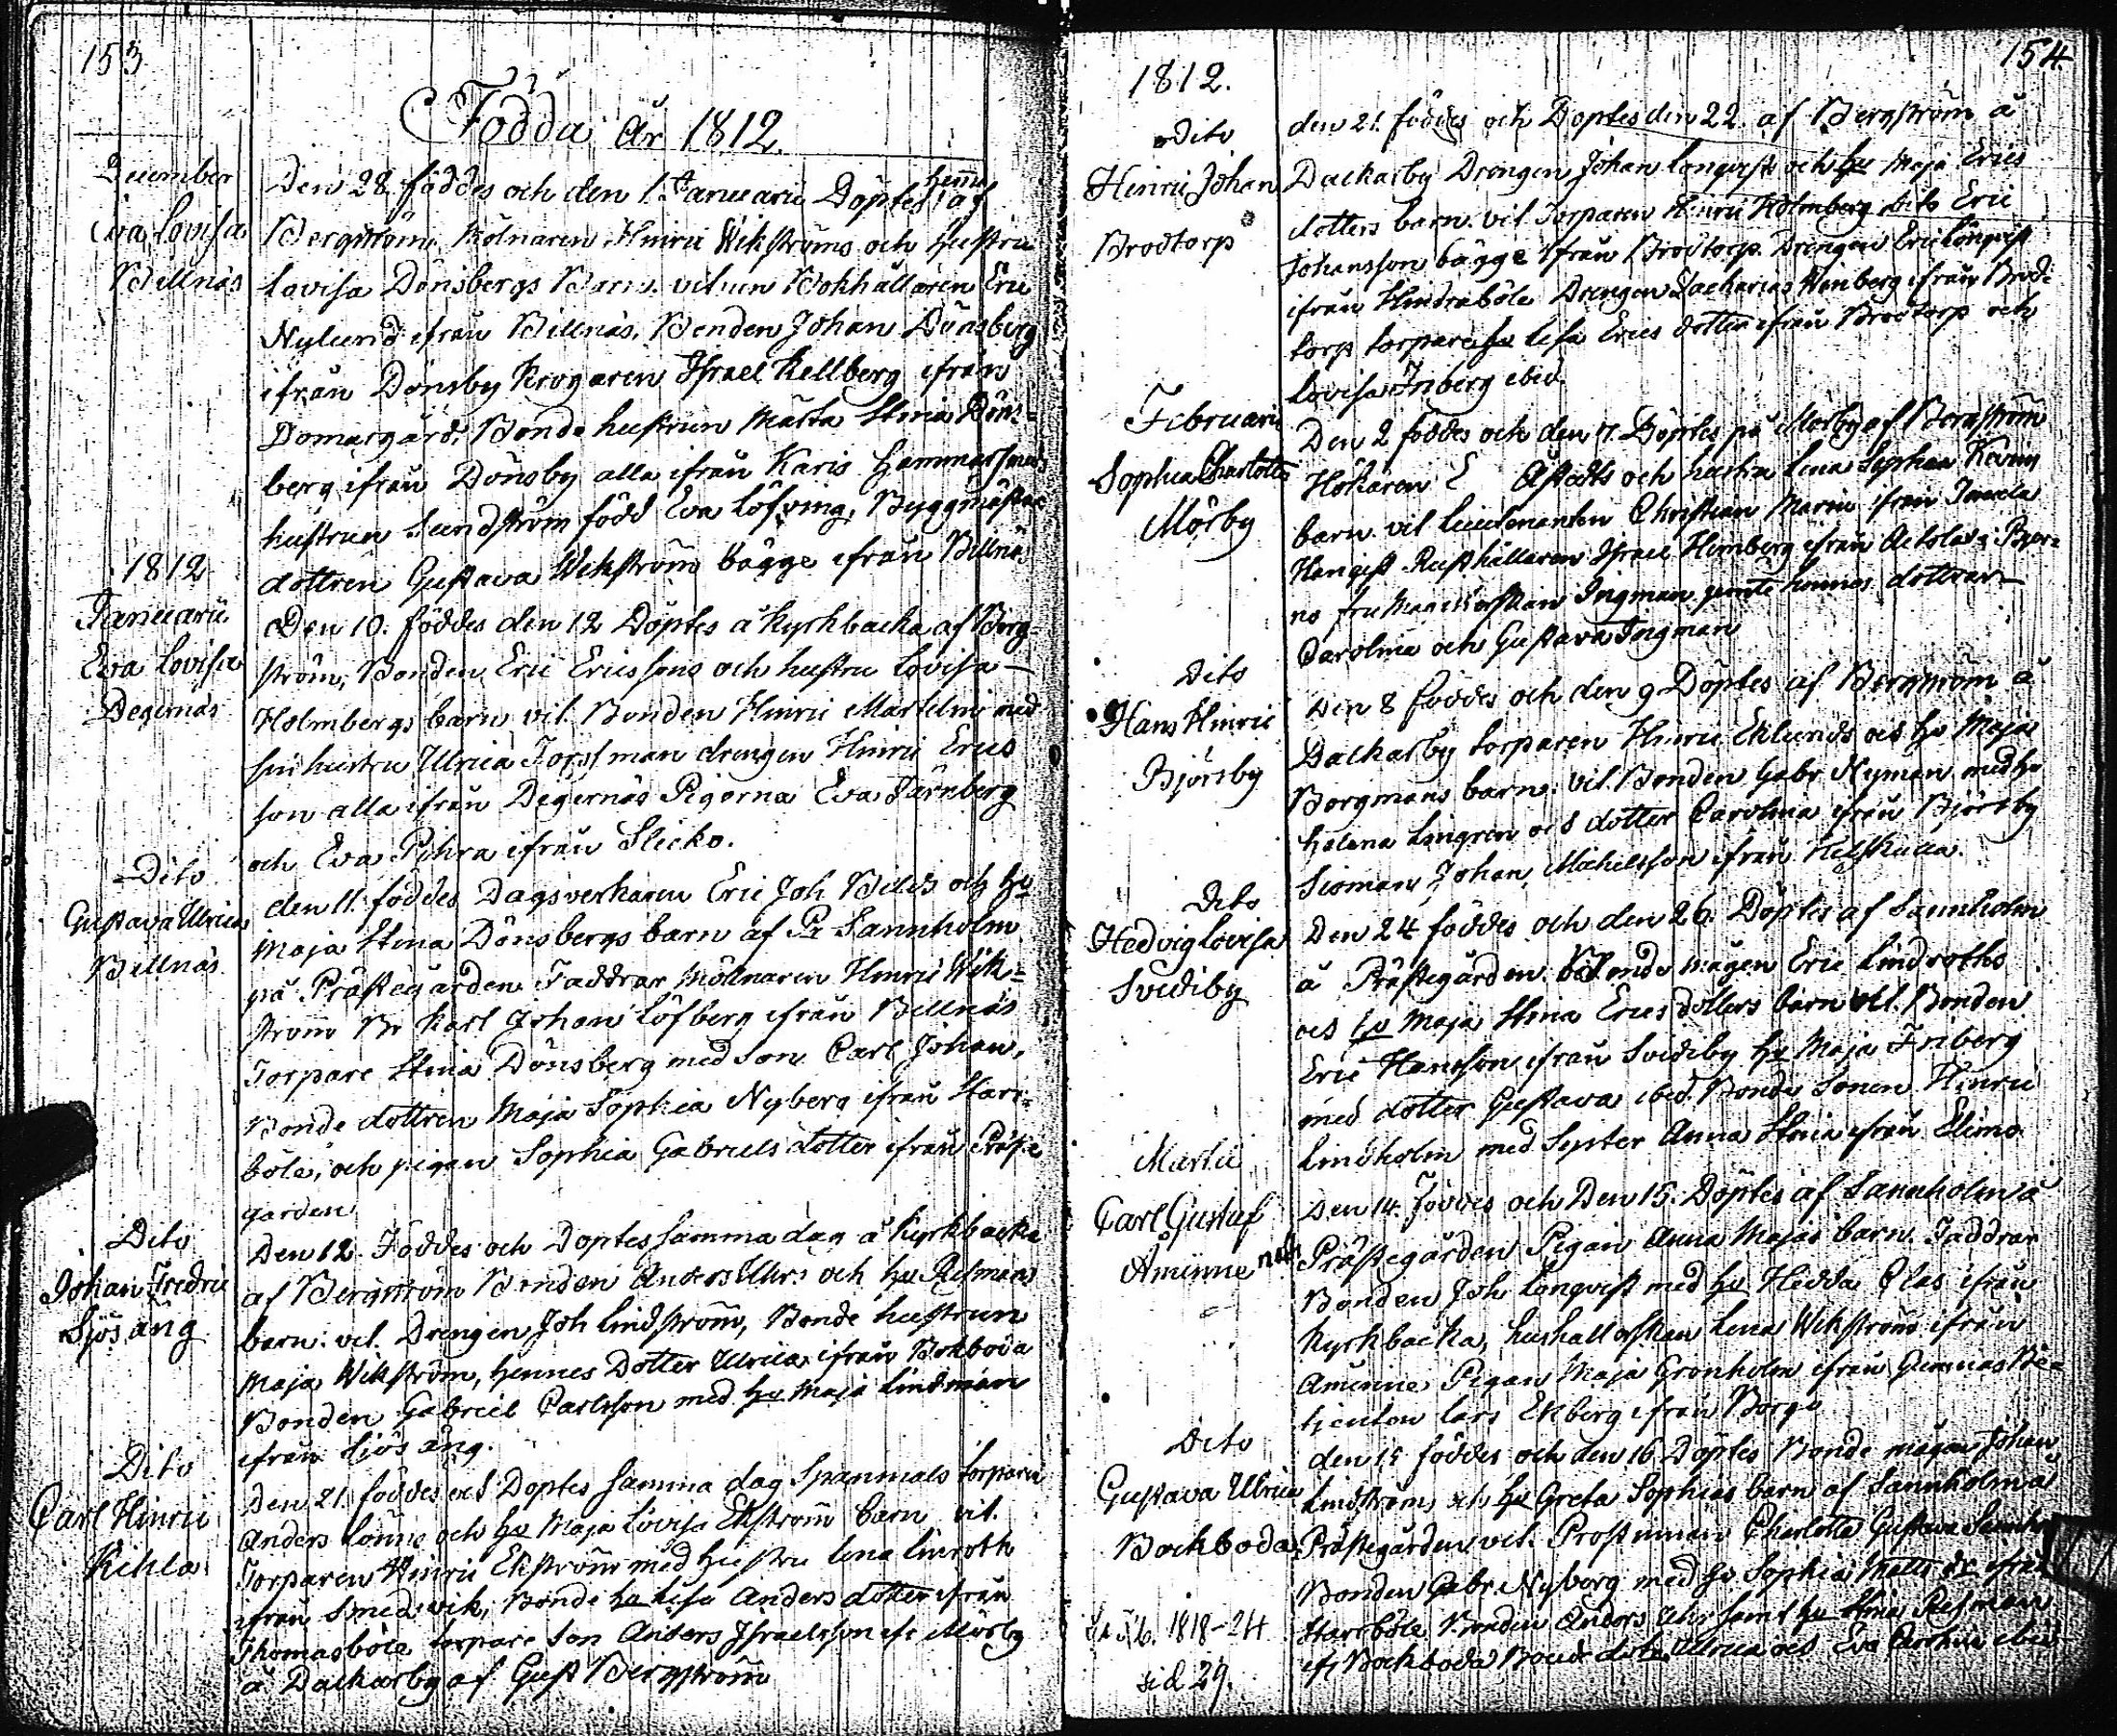 153
Födda år 1812.
December
Eva Lovisa
Billnäs
Den 28 föddes och den 1. Januarii Döptes hemma af
Bergström, Kolnaren Hinric Wikströms och hustru
Lovisa Dönsbergs Barn. vitnen Bokhållaren Eric
Nylund ifrån Billnäs, Bonden Johan Dönsberg
ifrån Dönsby Krogaren Israel Kellberg ifrån
Domargård, Bonde hustrun Märta Stina Döns-
berg ifrån Dönsby alla ifrån Karis Hammarsmeds
hustrun Sundström född Eva Löfving, Byggmästar
dottren Gustava Wikström bägge ifrån Billnäs
1812
Januarii
Eva Lovisa
Degernäs
Den 10. föddes den 12 Döptes å Kyrkbacka af Berg-
ström, Bonden Eric Ericssons och hustru Lovisa
Holmbergs barn vit. Bonden Hinric Martelin med
sin hustru Ulrica Forssman drengen Hinric Erics
son alla ifrån Degernäs Pigorna Eva Järnberg
och Eva Pihra ifrån Slicko.
Dito
Gustava Ulrica
Billnäs
den 11. föddes Dagsverkaren Eric Joh Bilds och hu
Maja Stina Dönsbergs barn af Pr Sannholm
på Prästegården Faddrar Mölnaren Hinric Wik-
ström Br Karl Johan Löfberg ifrån Billnäs
Torpare Stina Dönsberg med son Carl Johan,
Bonde dottren Maja Sophia Nyberg ifrån Harr-
böle, och pigan Sophia Gabriels dotter ifrån Präste
gården
Dito
Johan Fredric
Sjös äng
Den 12 Föddes och Döptes samma dag å Kyrkbacka
af Bergström Bonden Anders Uhrs och hu Refmans
barn: vit. Drengen Joh Lindström, Bonde hustrun
Maja Wikström, hennes Dotter Ulrica ifrån Bokboda
Bonden Gabriel Carlsson med hu Maja Lindman
ifrån Sjös äng.
Dito
Carl Hinric
Kihla
Den 21 föddes och Döptes samma dag Spanmals torparen
Anders Lönns och hu Maja Lovisa Ekström barn vit.
Torparen Hinric Ekström med hustru Lena Linroth
ifrån Smedsvik, Bonde hu Lisa Anders dotter ifrån
Thomasböle torpare Son Anders Israelsson ifr Mörby
å Dalkarby af Gust Bergström
154
1812.
Dito
Hinric Johan
Brodtorp
den 21. föddes och Döptes den 22. af Bergström å
Dalkarby Drengen Johan Lonqvist och hu Maja Erics
dotters barn. vit. Torparen Hinric Holmberg dito Eric
Johansson bägge ifrån Brodtorp. Drengen Eric Lönqvist
ifrån Hindraböle Drengen Zacharias Winberg ifrån Brod-
torp torpare hu Lisa Erics dotter ifrån Brodtorp och
Lovisa Friberg ibid
Februarii
Sophia Charlotta
Mörby
Den 2 föddes och den 7. Döptes på Mörby af Bergström
Hökaren E Åstedts och hustru Lena Sophia
barn. vit Lieutenanten Christian ifrån
Rusthållaren Israel Himberg ifrån
Ingman jemte hennes dottrar
Carolina och Gustava Ingman
Dito
Hans Hinric
Björsby
Den 8 föddes och den 9 Döptes af Bergström å
Dalkarby torparen Hinric Eklunds och hu Maja
Borgmans barn: vit. Bonden Gabr Nyman med hu
Helena Lingren och dotter Carolina ifrån Björsby
Sioman, Johan, Michelsson ifrån
Dito
Hedvig Lovisa
Svidiby
Den 24 föddes och den 26. Döptes af Sannholm
å Prästegården Bonde mågen Eric Lindroths
och hu Maja Stina Erics dotters barn vit. Bonden
Eric Hansson ifrån Svidiby hu Maja Friberg
med dotter Gustava ibid. Bonde Sonen Hinric
Lindholm med Syster Anna Stina ifrån Elimo
Martii
Carl Gustaf
Åminne
Den 14. Föddes och Den 15. Döptes af Sannholm å
Prästegården Pigan Anna Majas barn. Faddrar
Bonden Joh Lonqvist med hu Hedda Clas ifrån
Kyrkbacka, hushållerskan Lena Wikström ifrån
Åminne Pigan Maja Grönholm ifrån
tjensten Lars Ekberg ifrån Borgo
Dito
Gustava Ulrica
Bockboda
den 15 föddes och den 16 Döptes Bonde mågen Johan
Lindströms och hu Greta Sophias barn af Sannholm å
Prästegården vit. Prostinnan Charlotta Gustava
Bonden Gabr. Nyberg med hu Sophia Matts dr ifrån
Harrböle Bonden Anders Uhr samt hu Stina Refman
ifr Bockboda Bonde dotter Ulrica och Eva ibid
1818-24
sid 29.